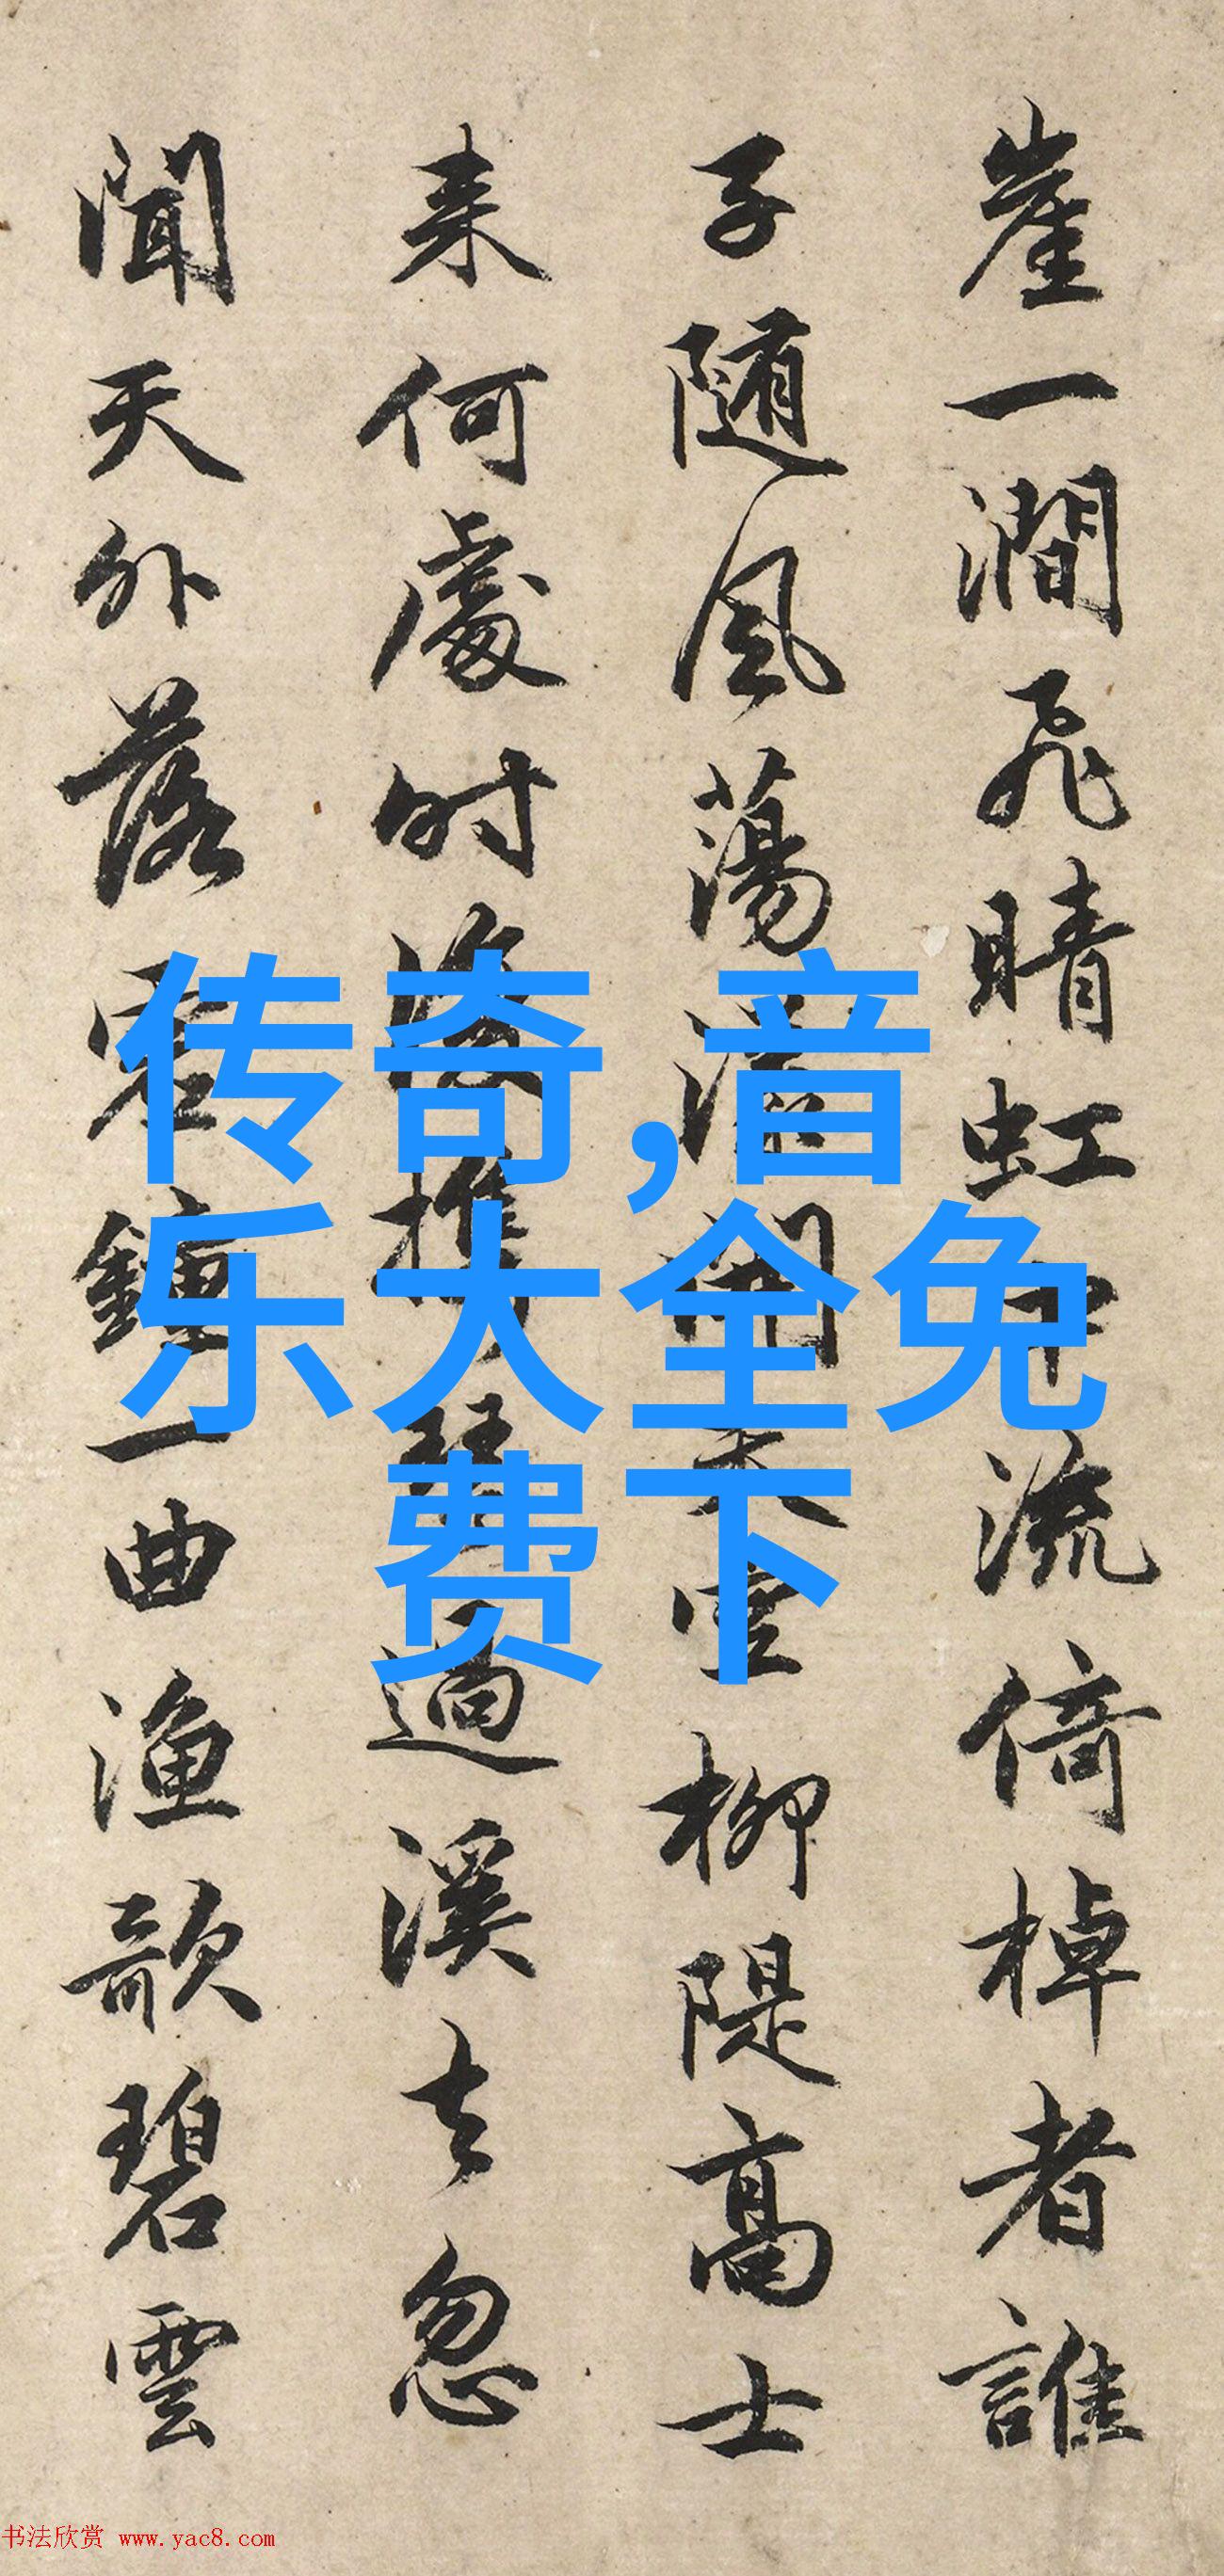 崖一澗飛晴虹中流倚棹者誰
子随風蕩漾空柳隄高士
来何處時携琴過溪去忽
聞天外落鐘一曲漁歌碧雲
传奇,音
乐大全免
费下
书法欣赏 www.yac8.com